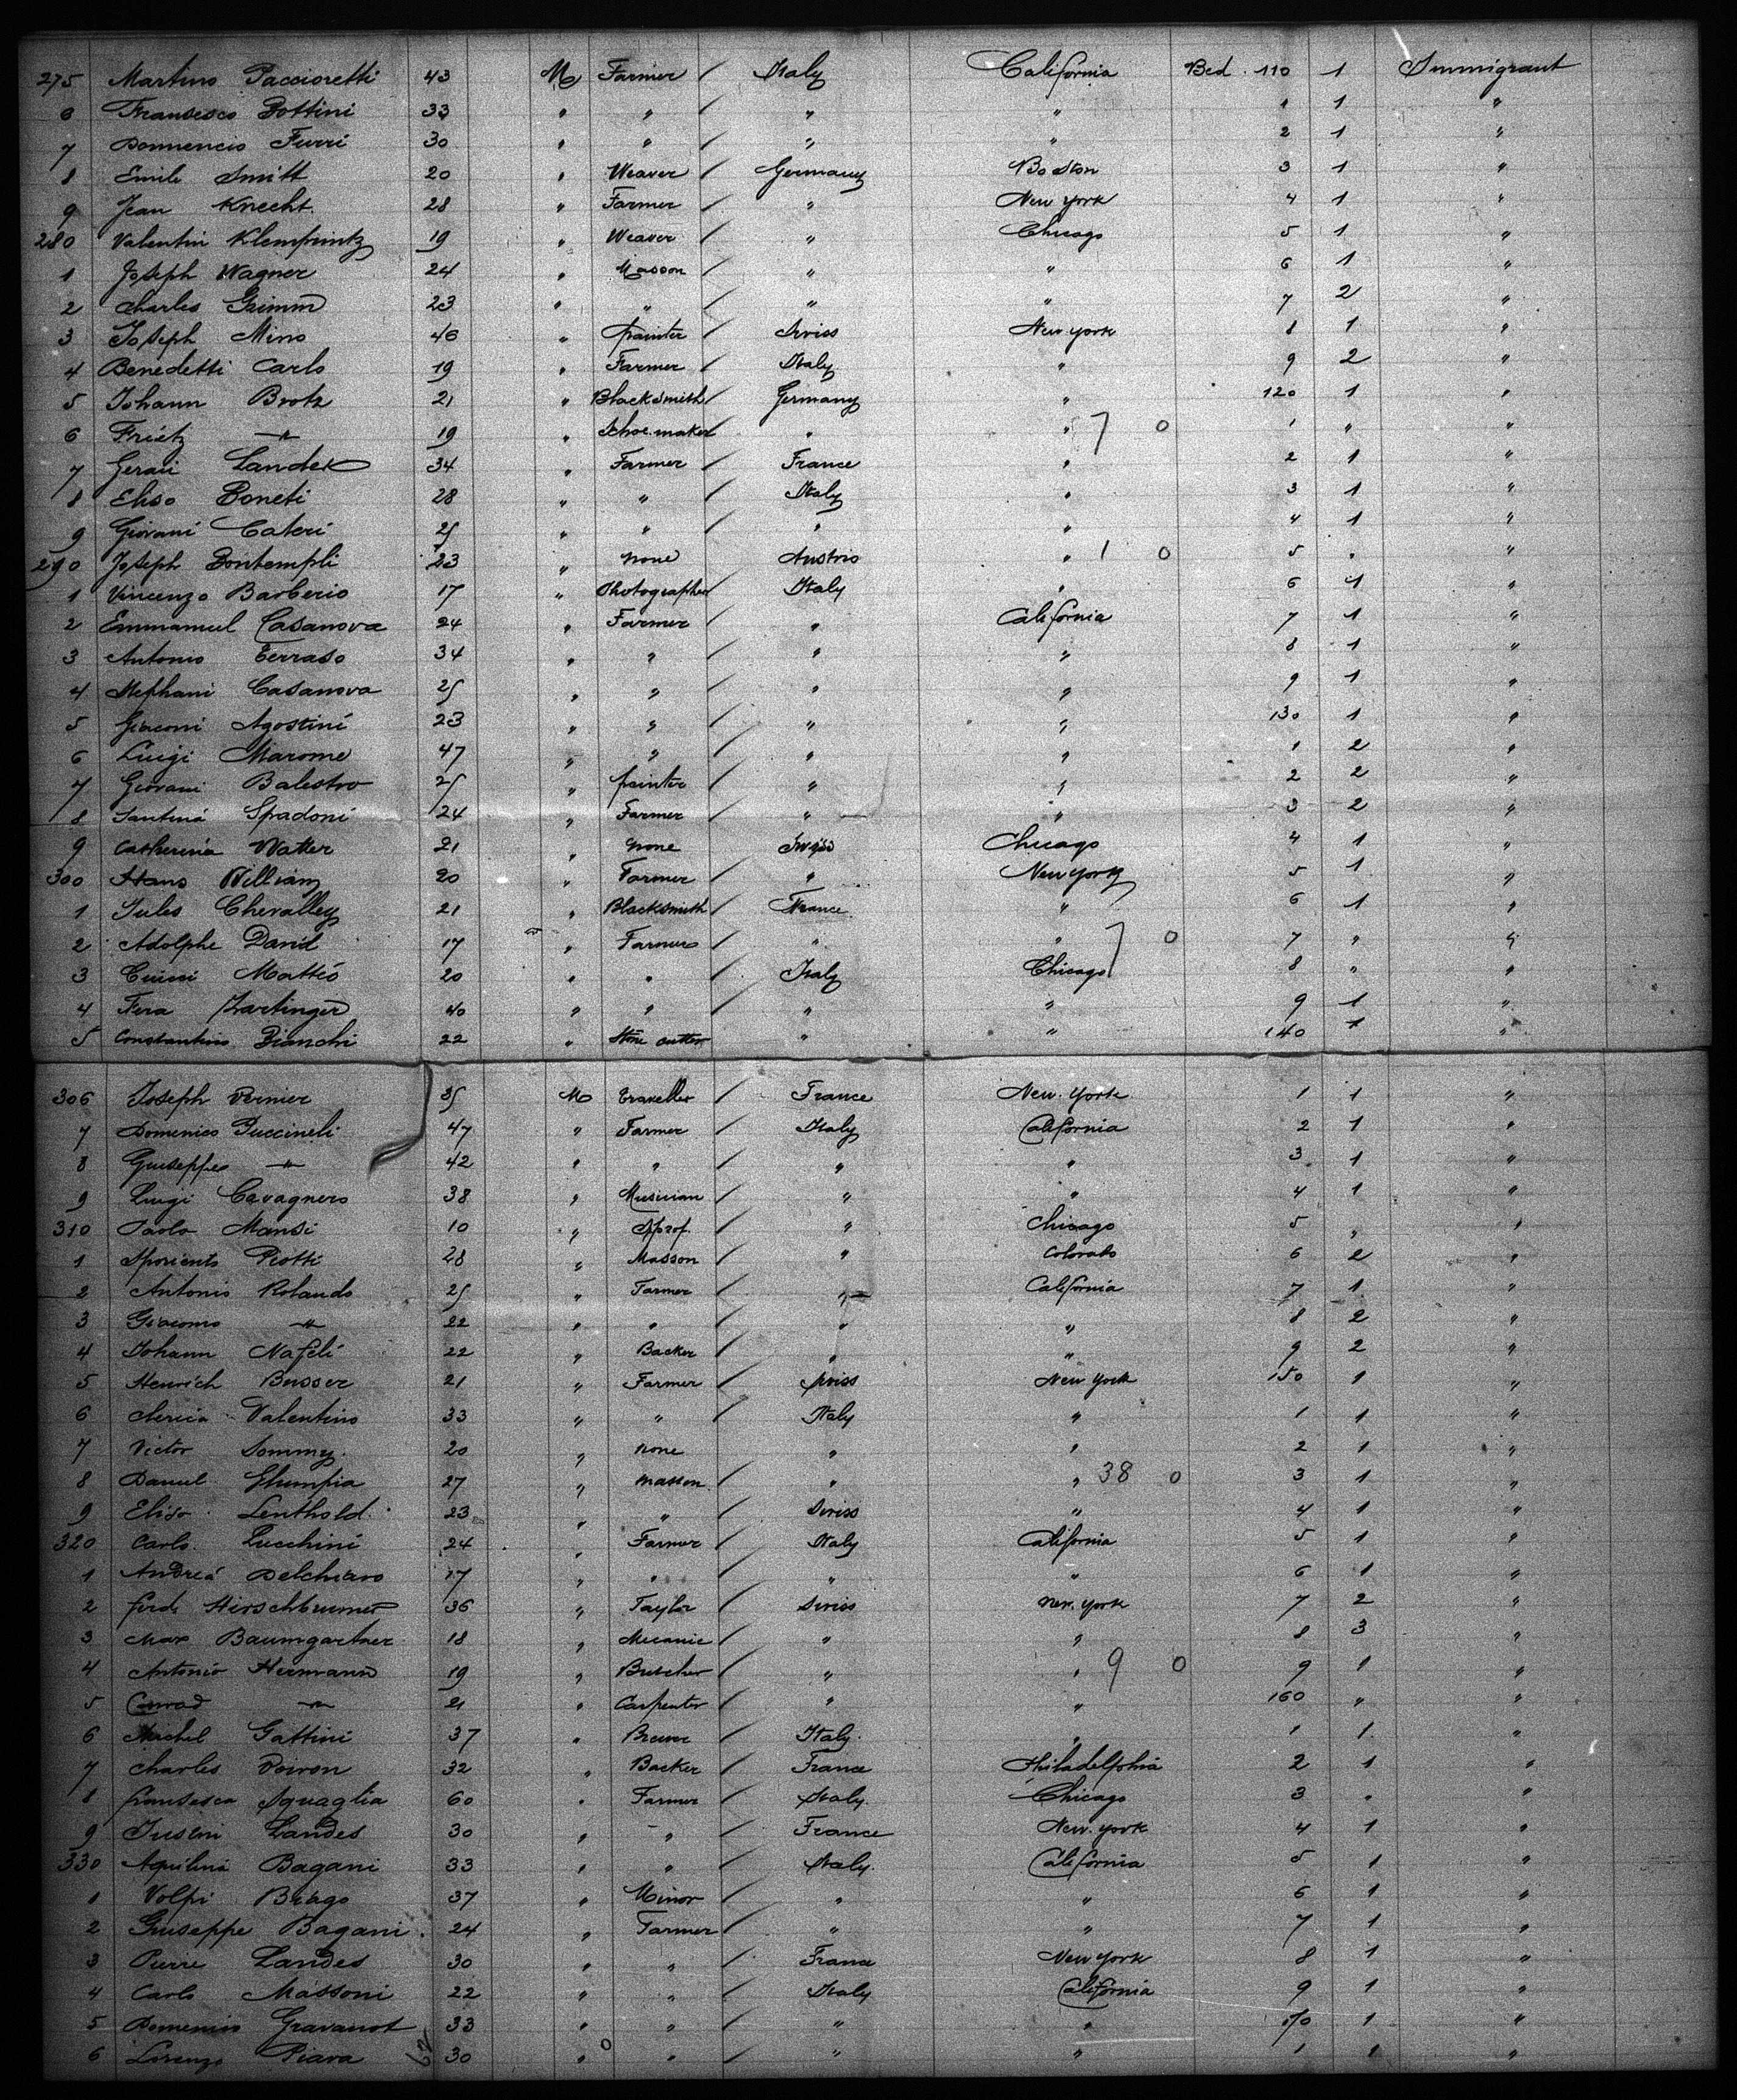 275 Martino Paccioretti 43 M Farmer / Italy California Bed. 110 1 Immigrant
6 Fransesco Bottini 33 " " / " " 1 1 "
7 Domnencio Furri 30 " " / " " 2 1 "
8 Emile Smitt 20 " Weaver / Germany Boston 3 1 "
9 Jean Knecht. 28 " Farmer / " New York 4 1 "
280 Valentin 19 " Weaver / " Chicago 5 1 "
1 Joseph Wagner 24 " Masson / " " 6 1 "
2 Charles Grimm 23 " " / " " 7 2 "
3 Joseph Mino 46 " painter / Swiss New York 8 1 "
4 Benedetti Carlo 19 " Farmer / Italy " 9 2 "
5 Johann Brotz 21 " Blacksmith / Germany " 120 1 "
6 Frietz " 19 " Schoe.maker / " " 7 0 1 " "
7 Landek 34 " Farmer / France " 2 1 "
8 Eliso Boneti 28 " " / Italy " 3 1 "
9 Giovani Cateri 25 " " / " " 4 1 "
290 Joseph Bontempli 23 " none Austria " 1 0 5 " "
1 Vincenzo Barberio 17 " Photographer Italy " 6 1 "
2 Emmanuel Casanova 24 " Farmer / " California 7 1 "
3 Antonio Terraso 34 " " / " " 8 1 "
4 Stephani Casanova 25 " " / " " 9 1 "
5 Giaconi Agostini 23 " " / " " 130 1 "
6 Luigi Marome 47 " " / " " 1 2 "
7 Giovani Balestro 25 " painter / " " 2 2 "
8 Santina Spadoni 24 " Farmer / " " 3 2 "
9 Catherina Watter 21 " none Swiss Chicago 4 1 "
300 Hans William 20 " Farmer / " New York 5 1 "
1 Jules Chevalley 21 " Blacksmith / France. " 6 1 "
2 Adolphe David 17 " Farmer / " " 7 0 7 " "
3 Matteo 20 " " / Italy Chicago 8 " "
4 Fera Zartinger 40 " " / " " 9 1 "
5 Constantino Bianchi 22 " Stone cutter / " " 140 1 "
306 Joseph Vernier 35 M Traveller / France New. York. 1 1 "
7 Domenico Puccineli 47 " Farmer / Italy California 2 1 "
8 Guiseppe " 42 " " / " " 3 1 "
9 Luigi Cavagnero 38 " Musician / " " 4 1 "
310 Paolo Mansi 10 " / " Chicago 5 " "
1 Piotti 28 " Masson / " Colorado 6 2 "
2 Antonio Rolando 25 " Farmer / " California 7 1 "
3 Giacomo " 22 " " / " " 8 2 "
4 Johann Nafeli 22 " Backer / " " 9 2 "
5 Henrich Busser 21 " Farmer / Swiss New York 150 1 "
6 Valentino 33 " " / Italy " 1 1 "
7 Victor Sommy. 20 " none " " 2 1 "
8 Daniel 27 " masson / " " 38 0 3 1 "
9 Eliso Lenthold. 23 " " / Swiss " 4 1 "
320 Carlo. Lucchini 24 " Farmer / Italy California 5 1 "
1 Andrea Delchiaro 17 " " / " " 6 1 "
2 Ferd. Hirschbrumer 36 " Taylor / Swiss New. York 7 2 "
3 Max Baumgartner 18 " Mecanic / " " 8 3 "
4 Antonio Hermann 19 " Butcher / " " 9 0 9 1 "
5 Conrad " 21 " Carpenter / " " 160 " "
6 Michel Gattini 37 " Brewer / Italy. " 1 1 "
7 Charles Poiron 32 " Backer / France Philadelphia 2 1 "
8 Fransesca Aquaglia 60 " Farmer / Italy. Chicago 3 " "
9 Justin Landes 30 " " / France New. York 4 1 "
330 Aquilina Bagani 33 " " / Italy. California 5 1 "
1 Volpi Briago 37 " Minor / " " 6 1 "
2 Guiseppe Bagani. 24 " Farmer / " " 7 1 "
3 Pierre Landes 30 " " / France New York 8 1 "
4 Carlo Massoni 22 " " / Italy California 9 1 "
5 Domenico Gravanot 33 " " / " " 170 1 "
6 Lorenzo Piava 62 30 " 0 " / " " 1 1 "